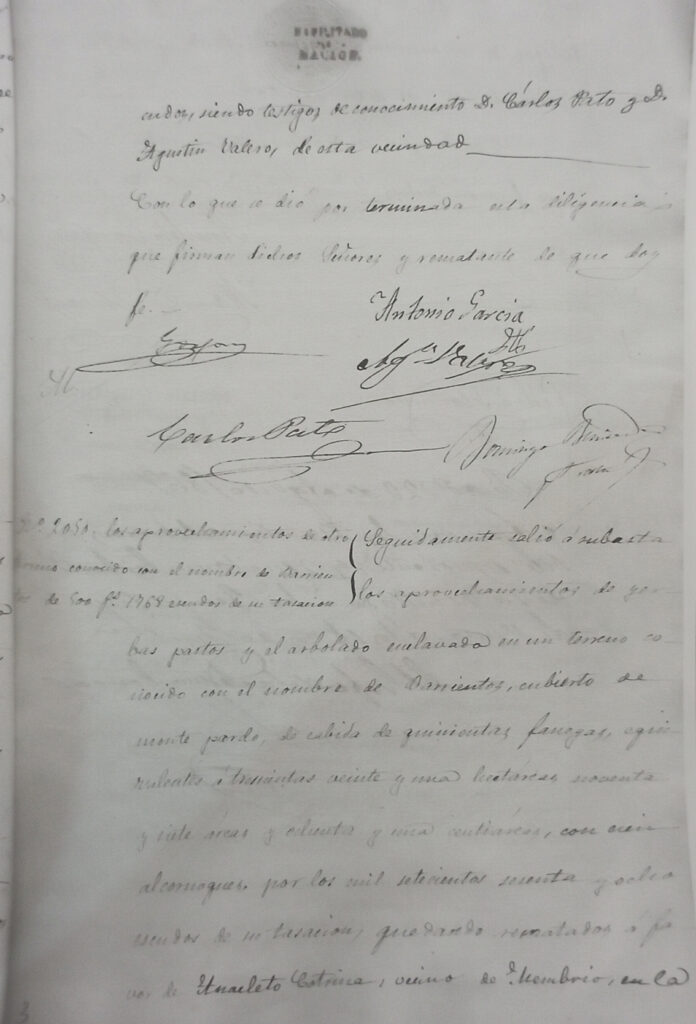 HABILITADO
NACION.
cudos, siendo testigos de conocimiento D. Cárlos Pato y D.
Agustin Valero, de esta vecindad
Con lo que se dió por terminada esta diligencia
que firman dichos Señores y rematante de que doy
fe.
Antonio Garcia
Agn Valero
Carlos Pato
Domingo
Nº 2050. los aprovechamientos de otro
terreno conocido con el nombre de Barrien
tos de 500 fs. 1768 escudos de su tasacion
Seguidamente salió á subasta
los aprovechamientos de yer-
bas pastos y el arbolado enclavado en un terreno co-
nocido con el nombre de Barrientos, cubierto de
monte pardo, de cabida de quinientas fanegas, equi-
valentes á trescientas veinte y una hectáreas noventa
y siete áreas y ochenta y una centiáreas, con cien
alcornoques, por los mil setecientos sesenta y ocho
escudos de su tasacion, quedando rematados á fa-
vor de Anacleto Cotrina, vecino de Membrio, en la
3